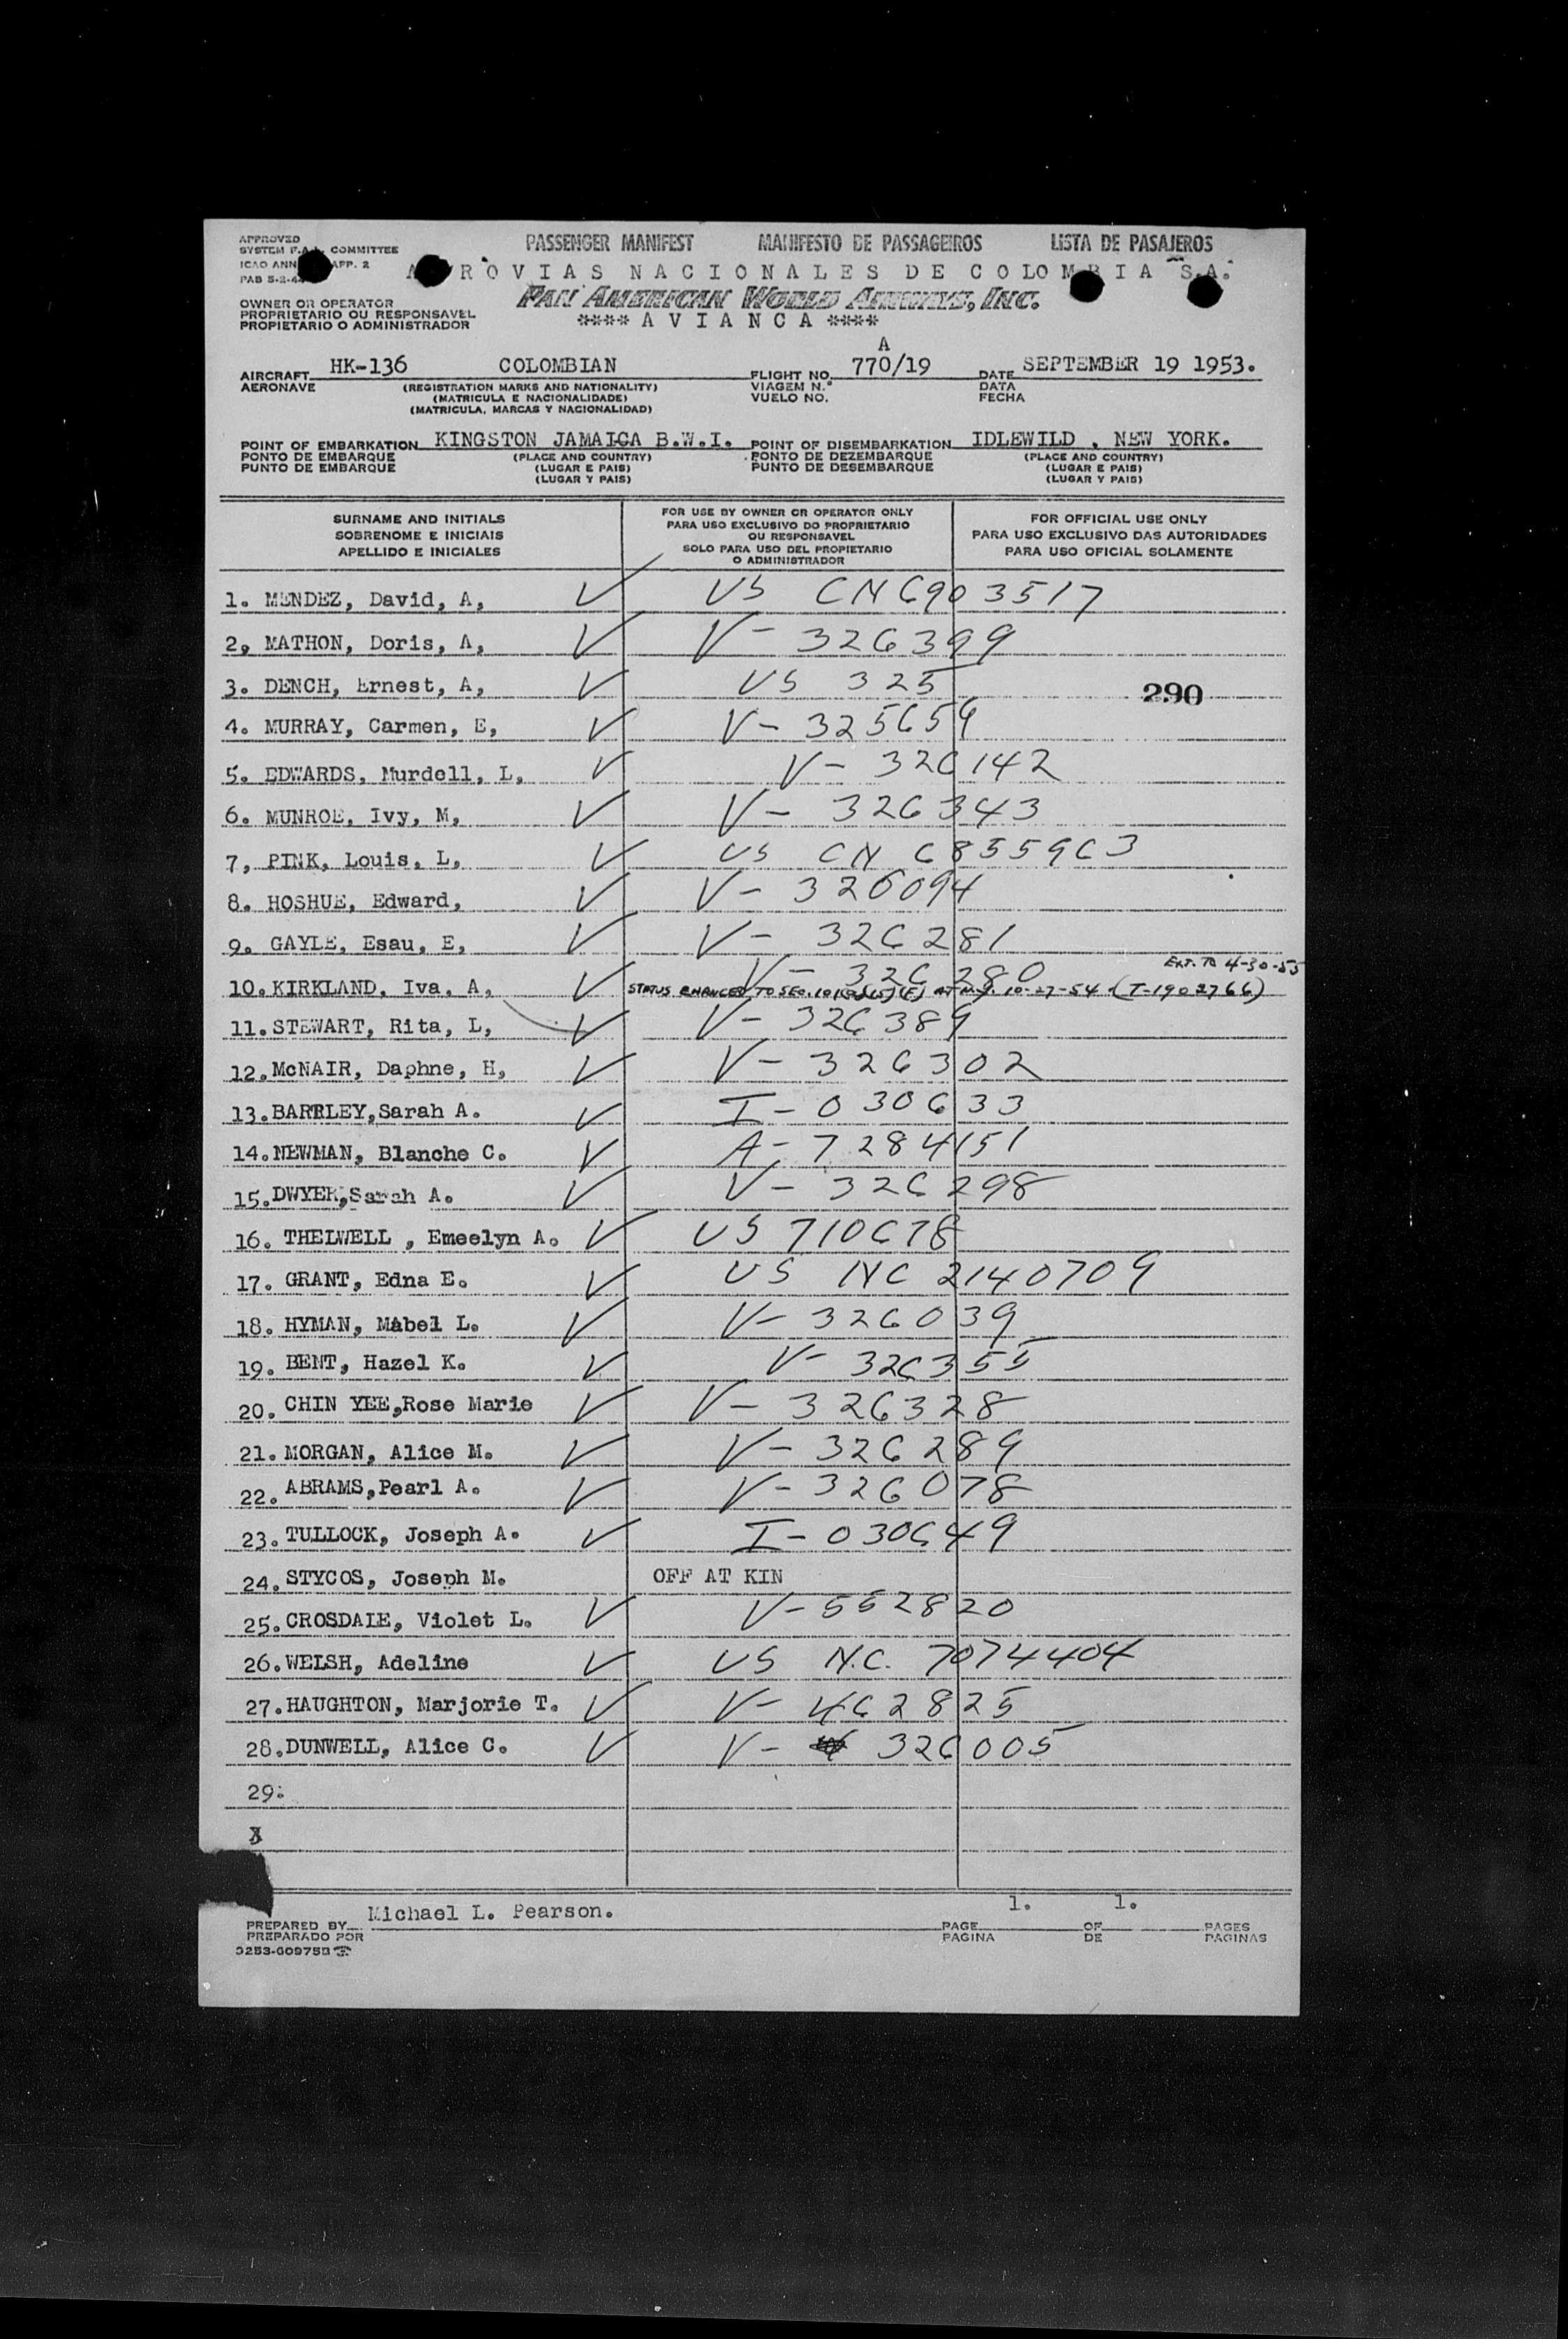 APPROVED
SYSTEM F.A.L. COMMITTEE
ICAO ANN APP. 2
PAB 5-2-4
PASSENGER MANIFEST MANIFESTO DE PASSAGEIROS LISTA DE PASAJEROS
A ROVIAS NACIONALES DE COLOMBIA S.A.
PAN AMERICAN WORLD AIRWAYS, INC.
**** A V I A N C A ****
OWNER OR OPERATOR
PROPRIETARIO OU RESPONSAVEL
PROPIETARIO O ADMINISTRADOR
A
AIRCRAFT HK-136 COLOMBIAN FLIGHT NO. 770/19 DATE SEPTEMBER 19 1953.
AERONAVE (REGISTRATION MARKS AND NATIONALITY) VIAGEM N.º DATA
(MATRICULA E NACIONALIDADE) VUELO NO. FECHA
(MATRICULA, MARCAS Y NACIONALIDAD)
POINT OF EMBARKATION KINGSTON JAMAICA B.W.I. POINT OF DISEMBARKATION IDLEWILD , NEW YORK.
PONTO DE EMBARQUE (PLACE AND COUNTRY) PONTO DE DEZEMBARQUE (PLACE AND COUNTRY)
PUNTO DE EMBARQUE (LUGAR E PAIS) PUNTO DE DESEMBARQUE (LUGAR E PAIS)
(LUGAR Y PAIS) (LUGAR Y PAIS)
SURNAME AND INITIALS
SOBRENOME E INICIAIS
APELLIDO E INICIALES
FOR USE BY OWNER OR OPERATOR ONLY
PARA USO EXCLUSIVO DO PROPRIETARIO
OU RESPONSAVEL
SOLO PARA USO DEL PROPIETARIO
O ADMINISTRADOR
FOR OFFICIAL USE ONLY
PARA USO EXCLUSIVO DAS AUTORIDADES
PARA USO OFICIAL SOLAMENTE
1. MENDEZ, David, A, ✓ US CN 6903517
2, MATHON, Doris, A, ✓ V- 326399
3. DENCH, Ernest, A, ✓ US 325 290
4. MURRAY, Carmen, E, ✓ V- 325659
5. EDWARDS, Murdell, L, ✓ V- 326142
6. MUNROE, Ivy, M, ✓ V- 326343
7, PINK, Louis, L, ✓ US CN 6855963
8. HOSHUE, Edward, ✓ V- 326094
9. GAYLE, Esau, E, ✓ V- 326281
EXT. TO 4-30-55
10. KIRKLAND, Iva, A, ✓ V- 326280
STATUS CHANGED TO SEC. 101(a)(15)(F) AT N.Y. 10-27-54 (T-1902766)
11. STEWART, Rita, L, ✓ V- 326389
12. McNAIR, Daphne, H, ✓ V- 326302
13. BARTLEY, Sarah A. ✓ I- 030633
14. NEWMAN, Blanche C. ✓ A- 7284151
15. DWYER, Sarah A. ✓ V- 326298
16. THELWELL , Emeelyn A. ✓ US 710678
17. GRANT, Edna E. ✓ US NC 2140709
18. HYMAN, Mabel L. ✓ V- 326039
19. BENT, Hazel K. ✓ V- 326355
20. CHIN YEE, Rose Marie ✓ V- 326328
21. MORGAN, Alice M. ✓ V- 326289
22. ABRAMS, Pearl A. ✓ V- 326078
23. TULLOCK, Joseph A. ✓ I- 030649
24. STYCOS, Joseph M. OFF AT KIN
25. CROSDALE, Violet L. ✓ V- 552820
26. WELSH, Adeline ✓ US N.C. 7074404
27. HAUGHTON, Marjorie T. ✓ V- 462825
28. DUNWELL, Alice C. ✓ V- 326005
29:
PREPARED BY Michael L. Pearson. PAGE 1. OF 1. PAGES
PREPARADO POR PAGINA DE PAGINAS
0253-609758